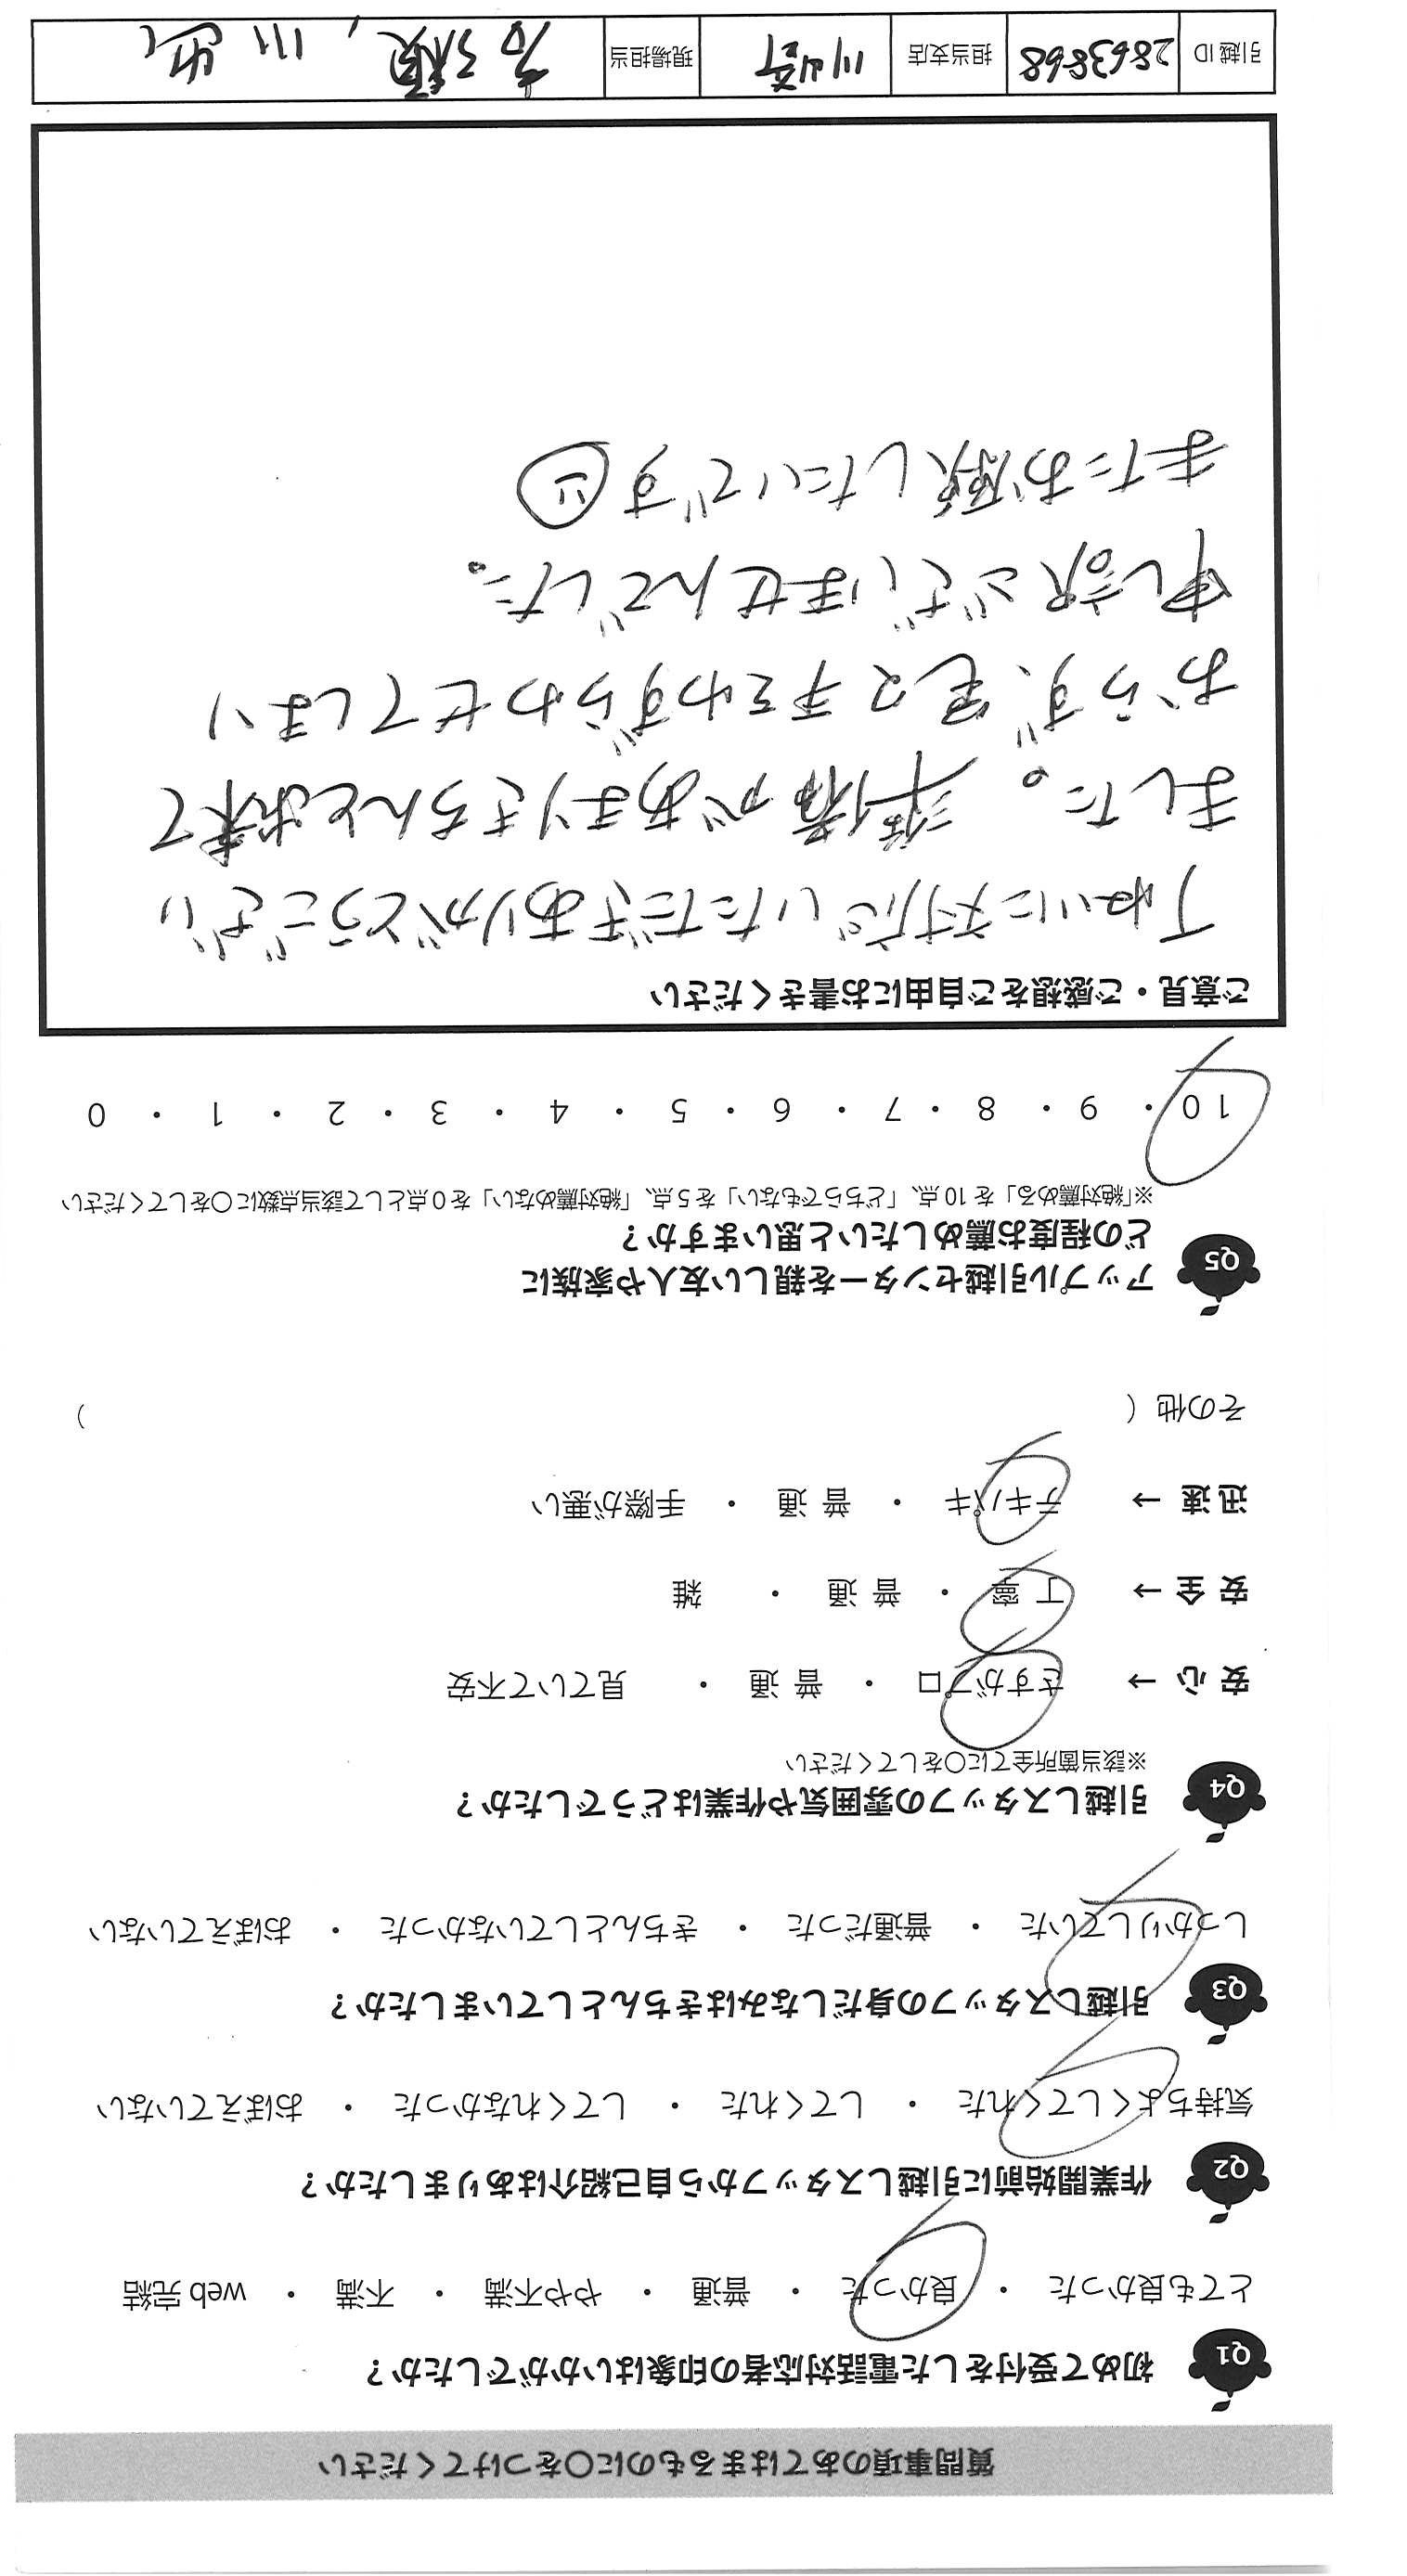 質問事項のあてはまるものに〇をつけてください
Q1 初めて受付をした電話対応者の印象はいかがでしたか？
とても良かった ・ 良かった ・ 普通 ・ やや不満 ・ 不満 ・ web 完結
Q2 作業開始前に引越しスタッフから自己紹介はありましたか？
気持ちよくしてくれた ・ してくれた ・ してくれなかった ・ おぼえていない
Q3 引越しスタッフの身だしなみはきちんとしていましたか？
しっかりしていた ・ 普通だった ・ きちんとしていなかった ・ おぼえていない
Q4 引越しスタッフの雰囲気や作業はどうでしたか？
※該当箇所全てに〇をしてください
安 心 → さすがプロ ・ 普 通 ・ 見ていて不安
安 全 → 丁 寧 ・ 普 通 ・ 雑
迅 速 → テキパキ ・ 普 通 ・ 手際が悪い
その他（ ）
Q5 アップル引越センターを親しい友人や家族に
どの程度お薦めしたいと思いますか？
※「絶対薦める」を 10 点、「どちらでもない」を 5 点、「絶対薦めない」を 0 点として該当点数に〇をしてください
10 ・ 9 ・ 8 ・ 7 ・ 6 ・ 5 ・ 4 ・ 3 ・ 2 ・ 1 ・ 0
ご意見・ご感想をご自由にお書きください
丁ねいに対応いただきありがとうござい
ました。準備があまりきちんと出来て
おらず、色々手をわずらわせてしまい
申し訳ございませんでした。
またお願いしたいです
引越 ID 2863868 担当支店 川崎 現場担当 高瀬, 川